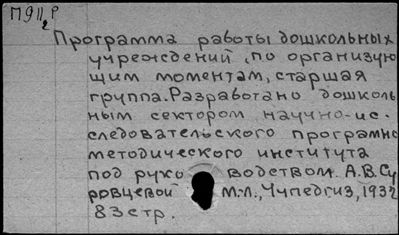 П911₂ Р
Программа работы дошкольных
учреждений, по организую
щим моментам, старшая
группа. Разработано дошколь
ным сектором научно-ис-
следовательского програмно
методического института
под руко водством А.В.Су
ровцевой М.-Л., Учпедгиз, 1932
83 стр.